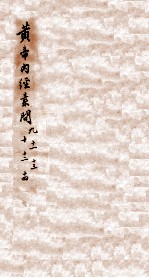 黃帝內經素問
九十一十三
十十二十四